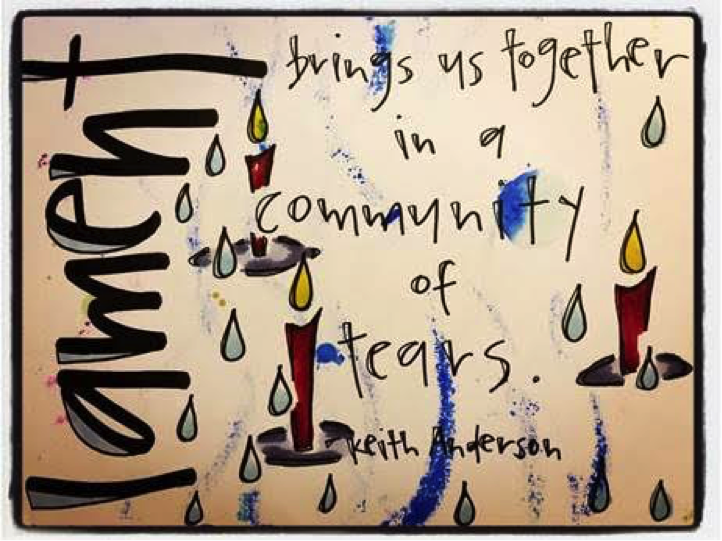 lament
brings us together
in a
community
of
tears.
Keith Anderson